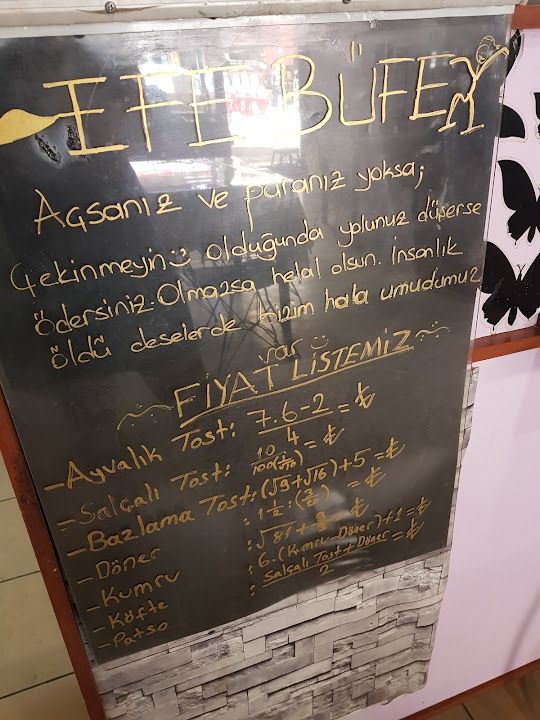 EFE BÜFE
Açsanız ve paranız yoksa;
Çekinmeyin olduğunda yolunuz düşerse
ödersiniz. Olmazsa helal olsun. İnsanlık
öldü deselerde bizim hala umudumuz
var
FİYAT LİSTEMİZ
- Ayvalık Tost: 7.6-2/4 = ₺
- Salçalı Tost: = ₺
- Bazlama Tost: (√9+√16)+5 = ₺
- Döner : 1 1/2 : = ₺
- Kumru : √81 + = ₺
- Köfte : 6.(Kumru-Döner)+1 = ₺
- Patso : Salçalı Tost+Döner/2 = ₺